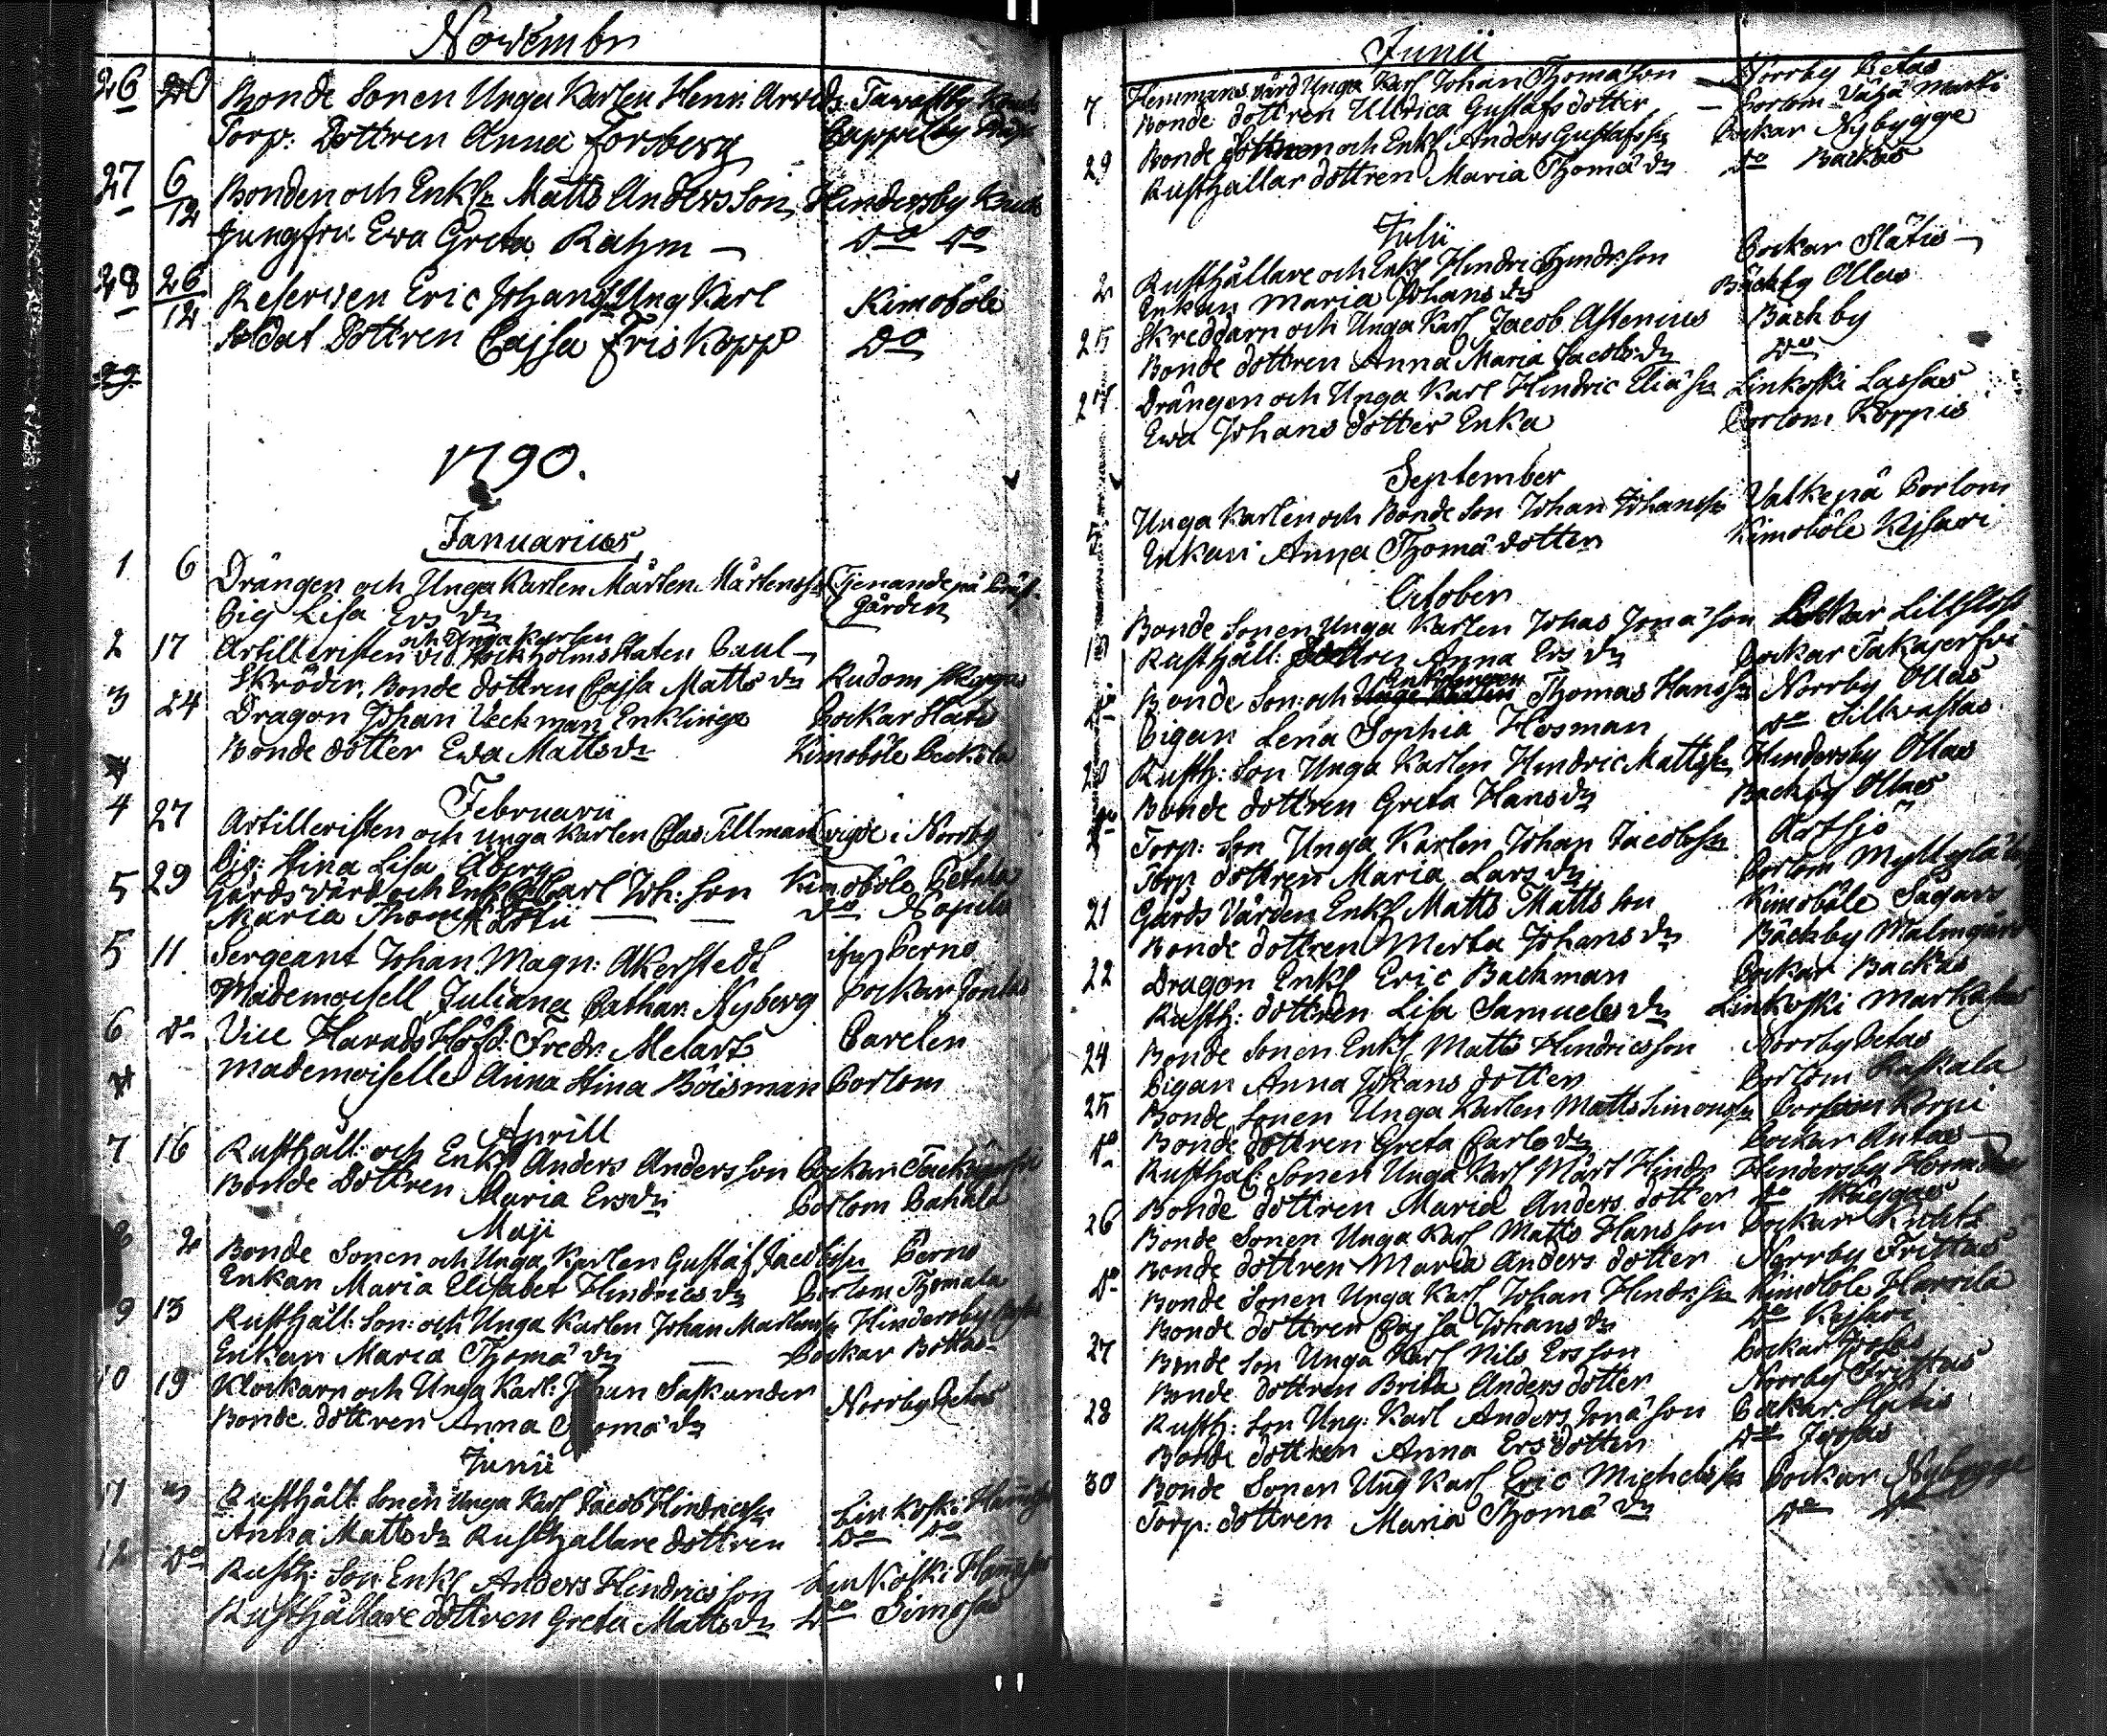 Novembr
26 20 Bonde Sonen Unga Karlen Henr: Arvids: Tavastby
Torp: Dottren Anna Forsberg Cappelby
27 6/12 Bonden och Enkl: Matts Andersson, Hindersby
Jungfru Ewa Greta Rahm — Do Do
28 26/12 Reserven Eric Johans: Ung Karl Kimoböle
Soldat Dottren Cajsa Friskopp Do
1790.
Januarius
1 6 Drängen och Unga Karlen Mårten Mårtenss: Tjenande på
Pig Lisa Ers dr gården
och Unga Karlen
2 17 Artilleristen vid Stockholms Staten Paul —
Skröder, Bonde dottren Cajsa Matts dr Rudom Skeggas
3 24 Dragon Johan Veckman Enklinge Pockar Slätis
Bonde dotter Ewa Matts dr Kimoböle
Februarii
4 27 Artilleristen och Unga Karlen Clas Tillman vigde i Norrby
Pig: Stina Lisa Åberg
5 29 Gårds vård och Enkl: Carl Joh: son Kimoböle Pekala
Maria Thomæ — — Do
Martii
5 11 Sergeant Johan Magn: Åkerstedt ifrån Perno
Mademoisell Juliana Cathar: Nyberg Pockar
6 Do Vice Härads Höfd: Fredr: Melart Carelen
Mademoiselle Anna Stina Böisman Porlom
Aprill
7 16 Rusthåll: och Enkl: Anders Andersson Pockar
Bonde Dottren Maria Ers dr Porlom Pahkla
Maji
8 2 Bonde Sonen och Unga Karlen Gustaf Jacobss: Perno
Enkan Maria Elisabet Hindrics dr Porlom Thomala
9 13 Rusthåll: Son: och Unga Karlen Johan Mårtenss: Hindersby
Enkan Maria Thomæ dr — Pockar Bottas
10 19 Klockarn och Unga Karl: Johan Saskander Norrby Petas
Bonde dottren Anna Thomæ dr
Junii
11 Rusthåll: Sonen Unga Karl Jacob Hindricss: Linkoski
Anna Matts dr Rusthållare dottren Do Do
12 Do Rusth: Son: Enkl Anders Hindricsson Linkoski
Rusthållare dottren Greta Matts dr Do Simosas
Junii
7 Hemmans vård Unga Karl Johan Thomason — Norrby Petas
Bonde dottren Ullrica Gustafs dotter — Porlom Vähä Marti
29 Bonde och Enkl Anders Gustafss: Pockar Nybygge
Rusthållar dottren Maria Thomæ dr Do Backas
Julii
2 Rusthållare och Enkl Hindric Hindrsson Pockar Slätis —
Enkan Maria Johans dr Bäckby Ollas
25 Skreddarn och Unga Karl Jacob Astenius Backby
Bonde dottren Anna Maria Jacobs dr Do
Drängen och Unga Karl Hindric Eliæ sn Linkoski Lassas
Ewa Johans dotter Enka Porlom Korpis
September
5 Unga Karlen och Bonde Son Johan Johanss: Valkepä Porlom
Enkan Anna Thomæ dotter Kimoböle Kejsari
October
Bonde Sonen Unga Karlen Johas Jonæ son Pockar
Rusthåll: Dottren Anna Ers dr Pockar
Enklingen
Bonde Son: och Unga Karlen Thomas Hanss: Norrby Ollas
Pigan Lena Sophia Hosman Do Sillvastas
20 Rusth: Son Unga Karlen Hindric Mattss: Hindersby Ollas
Bonde dottren Greta Hans dr Backby Ollas
Torp: Son Unga Karlen Johan Jacobss: Artsjö
Torp dottren Maria Lars dr Porlom
21 Gårds Vården Enkl Matts Mattsson Kimoböle Sagars
Bonde dottren Merta Johans dr Bäckby Malmgård
22 Dragon Enkl Eric Backman Pockar Backas
Rusth: dottren Lisa Samuels dr Linkoski
24 Bonde Sonen Enkl Matts Hindricsson Norrby Petas
Pigan Anna Johans dotter Porlom Raskala
25 Bonde Sonen Unga Karlen Matts Simonss: Porlom Korpi
Bonde dottren Greta Carls dr Pockar Antas —
Do Rusthål: Sonen Unga Karl Mårt Hindr: Hindersby
Bonde dottren Maria Anders dotter Do Skäggas
26 Bonde Sonen Unga Karl Matts Hansson Pockar
Bonde dottren Maria Anders dotter Norrby Frittas
Do Bonde Sonen Unga Karl Johan Hindrss: Kimoböle Harrila
Bonde dottren Cajsa Johans dr Do Kejsari
27 Bonde Son Unga Karl Nils Ersson Pockar
Bonde dottren Brita Anders dotter Norrby Frittas
28 Rusth: Son Ung: Karl Anders Jonæ son Pockar Slätis
Bonde dottren Anna Ers dotter Do
30 Bonde Sonen Ung Karl Eric Michelss: Pockar Nybygge
Torp: dottren Maria Thomæ dr Do Do